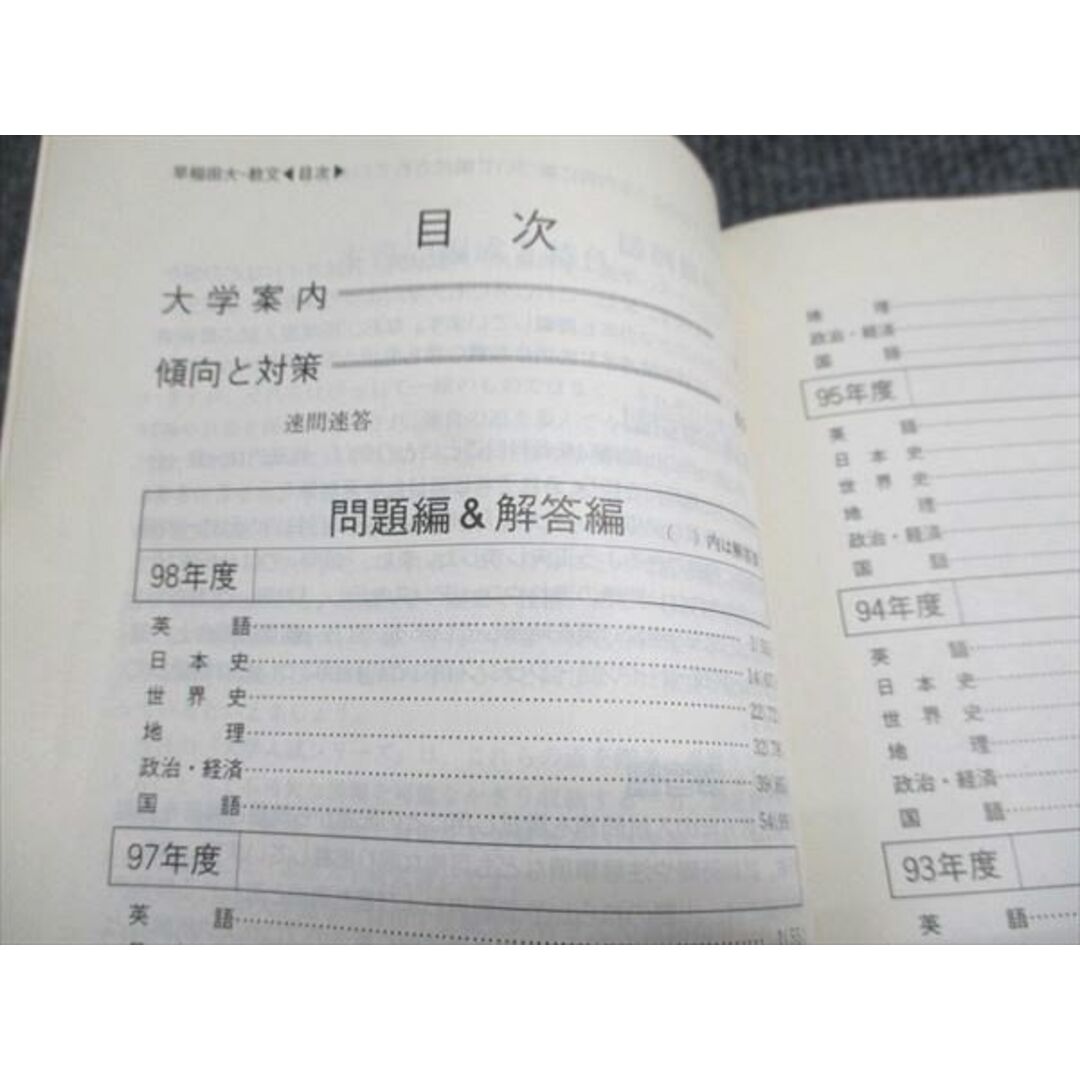 早稲田大-教文◀目次▶
目 次
大学案内
傾向と対策
速問速答
問題編&解答編
98年度
英 語
日 本 史
世 界 史
地 理
政治・経済
国 語
97年度
英 語
地 理
政治・経済
国 語
95年度
英 語
日 本 史
世 界 史
地 理
政治・経済
国 語
94年度
英 語
日 本 史
世 界 史
地 理
政治・経済
国 語
93年度
英 語